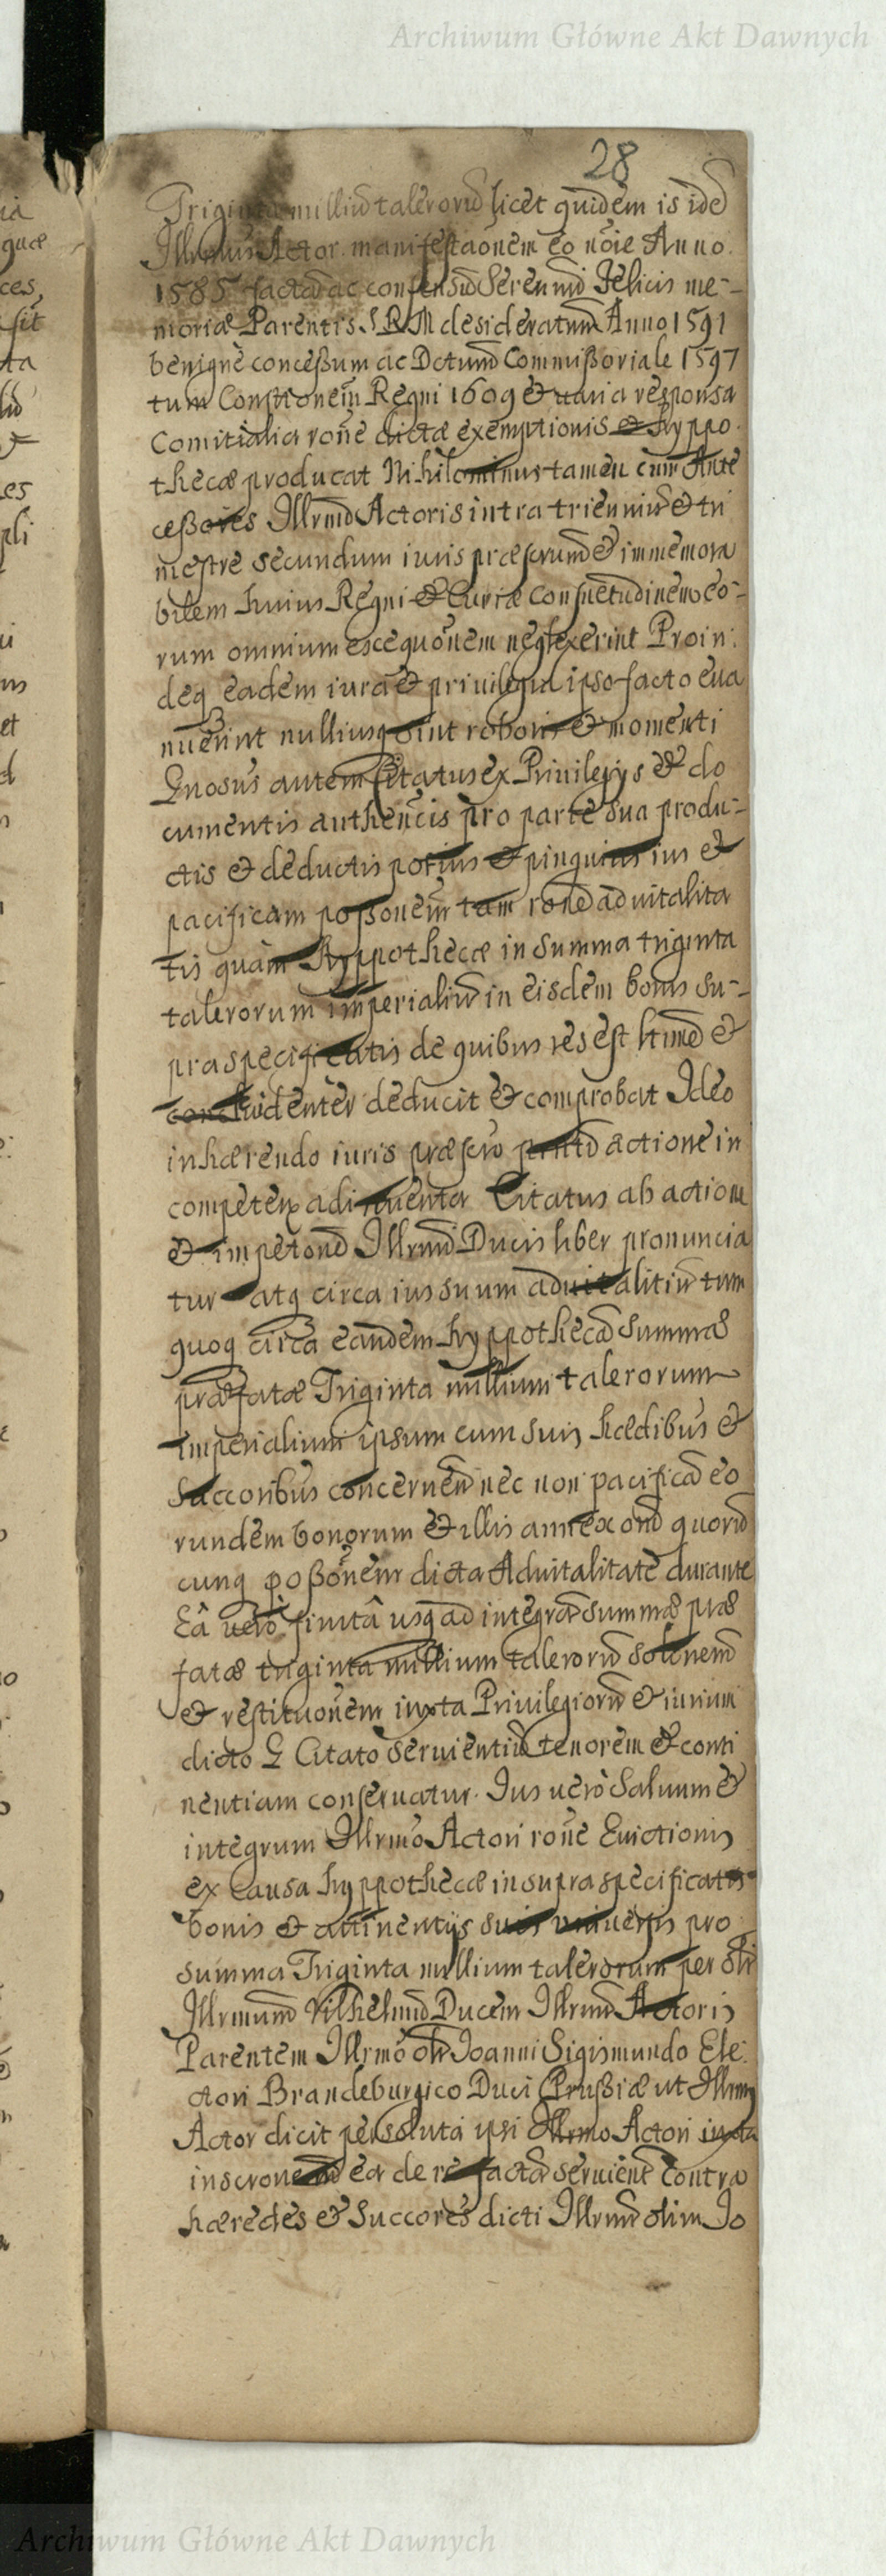 Archiwum Główne Akt Dawnych
28
Triginta milliū talerorū licet quidem is idē
Illrmus Actor manifestaōnem eo nōie Anno
1585 factā ac consensū Serenmi Felicis me-
moriæ Parentis S R M desideratum Anno 1591
benignè conceßum ac Dctum Commißoriale 1597
tum Constionem Regni 1609 et varia responsa
Comitialia rōne dictæ exemptionis et hyppo
thecæ producat Nihilominus tamen cum Ante
ceßores Illrmi Actoris intra trienniū et tri
mestre secundum iuris præscrum et immemora
bilem huius Regni et Curiæ consuetudinem eo-
rum omnium exequōnem neglexerint Proin
deq eadem iura et privilegia ipso facto eva
nuerint nulliusq sint roboris et momenti
Gnosus autem Citatus ex Privilegijs et do
cumentis authencis pro parte sua produ-
ctis et deductis potius et pinguius ius et
pacificam poßonem tam rōne advitalita
tis quàm hyppothecæ in summa triginta
talerorum imperialiū in eisdem bonis su-
praspecificatis de quibus res est ltime et
evidenter deducit et comprobat Ideo
inhærendo iuris præscro actione in
competen adinventa Citatus ab actione
et impetone Illrmi Ducis liber pronuncia
tur atq circa ius suum advitalitiū tum
quoq circa eandem hyppothecā summæ
præfatæ Triginta millium talerorum
imperialium ipsum cum suis hædibus et
succoribus concernen nec non pacificā eo
rundem bonorum et illis annexonē quorū
cunq poßonem dicta Advitalitate durante
Eâ verò finitâ usq ad integrā summæ præ
fatæ triginta millium talerorū solunem
et restituonem iuxta Privilegiorū et iurium
dicto G Citato servientiū tenorem et conti
nentiam conservatur. Ius verò salvum et
integrum Illrmo Actori rōne Evictionis
ex causa hyppothecæ in supraspecificatis
bonis et attinentijs suis universis pro
summa Triginta millium talerorum per oli
Illrmum Vilhelmū Ducem Illrmi Actoris
Parentem Illrmo oli Joanni Sigismundo Ele
ctori Brandeburgico Duci Prußiæ ut Illrmus
Actor dicit persoluta ipsi Illrmo Actori iuxta
inscronem ea de re factā servient contra
hæredes et Succores dicti Illrmi olim Jo
Archiwum Główne Akt Dawnych